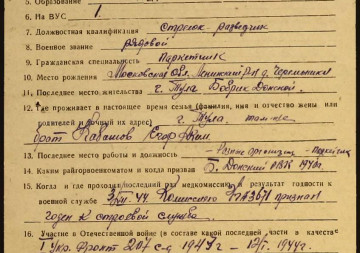 5. Образование
6. На ВУС 1.
7. Должностная квалификация стрелок разведчик
8. Военное звание рядовой
9. Гражданская специальность Паркетчик
10. Место рождения Московская обл. Ленинский р-н д. Черемушки
11. Последнее место жительства г. Тула Бобрик Донской.
12. Где проживает в настоящее время семья (фамилия, имя и отчество жены или
родителей и точный их адрес) г. Тула.
брат Кабашов Егор
13. Последнее место работы и должность
14. Каким райгорвоенкоматом и когда призван Б. Донский РВК
15. Когда и где проходил последний раз медкомиссию и результат годности к
военной службе 44 Комиссией признан
годен к строевой службе.
16. Участие в Отечественной войне (в составе какой последней части, в качестве
1 Укр. Фронт 207 с.д. 1943г - 1944г.